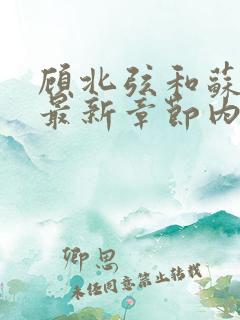 顾北弦和蘇
最新章節内
卿思
未经同意禁止转载